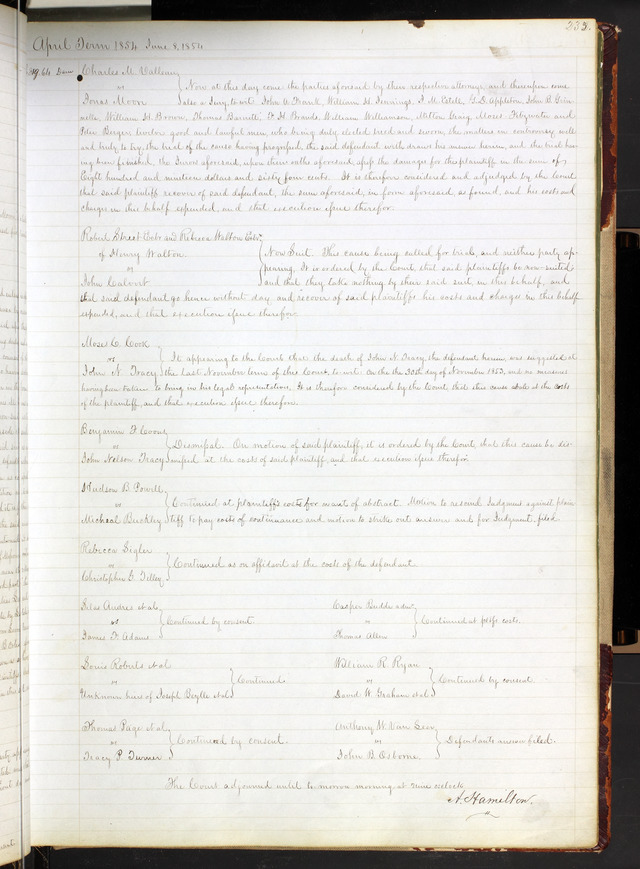 235.
April Term 1854 June 8, 1854
Charles M. Valleau
vs
Jonas Moon
Now at this day come the parties aforesaid by their respective attorneys, and thereupon came
also a Jury, to wit: John W. Frank, William H. Jennings, J. M. Estell, G. D. Appleton, John B.
William H. Brown, Thomas Barnett, William Williamson, Milton Craig, Moses Fitzwater and
Peter Berger, twelve good and lawful men, who being duly elected tried and sworn, the matters in controversy well
and truly to try, the trial of the cause having progressed, the said defendant with draws his answer herein, and the trial hav
ing been finished, the Jurors aforesaid, upon their oaths aforesaid, assess the damages for the plaintiff in the sum of
Eight hundred and nineteen dollars and sixty four cents. It is therefore considered and adjudged by the Court
that said plaintiff recover of said defendant, the sum aforesaid, in form aforesaid, as found, and his costs and
charges in this behalf expended, and that execution issue therefor.
Robert Street Exor and Rebecca Walton Exrx
of Henry Walton
vs
John Calvert
Non Suit. This cause being called for trial, and neither party ap-
pearing, It is ordered by the Court, that said plaintiffs be non-suited
and that they take nothing by their said suit, in this behalf, and
that said defendant go hence without day and recover of said plaintiffs his costs and charges in this behalf
expended, and that execution issue therefor.
Moses C. Cook
vs
John N. Tracy
It appearing to the Court that the death of John N. Tracy, the defendant herein, was suggested at
the last November term of this Court, to wit: On the 30th day of November 1853, and no measures
having been taken to bring in his legal representatives, It is therefore considered by the Court, that this cause abate at the costs
of the plaintiff, and that execution issue therefor.
Benjamin F. Coons
vs
John Nelson Tracy
Dismissal. On motion of said plaintiff, it is ordered by the Court, that this cause be dis-
missed at the costs of said plaintiff, and that execution issue therefor.
Hudson B. Powell
vs
Micheal Buckley
Continued at plaintiff's costs for want of abstract. Motion to rescind Judgment against plain
tiff to pay costs of continuance and motion to strike out answer and for Judgment, filed.
Rebecca Sigler
vs
Christopher G. Tilley
Continued as on affidavit at the costs of the defendant.
Silas Andres et als
vs
James F. Adams
Continued by consent.
Casper Budde admr
vs
Thomas Allen
Continued at plffs costs.
Louis Roberts et al
vs
Unknown heirs of Joseph et al
Continued.
William R. Ryan
vs
David W. Graham et al
Continued by consent.
Thomas Page et al
vs
Tracy P. Turner
Continued by consent.
Anthony W. Van Lear
vs
John B. Osborne
Defendants answer filed.
The Court adjourned until to morrow morning, at nine oclock
A. Hamilton.